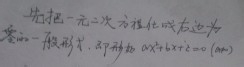 先把一元二次方程化成右边为
零的一般形式,即形如 ax²+bx+c=0 (a≠0)